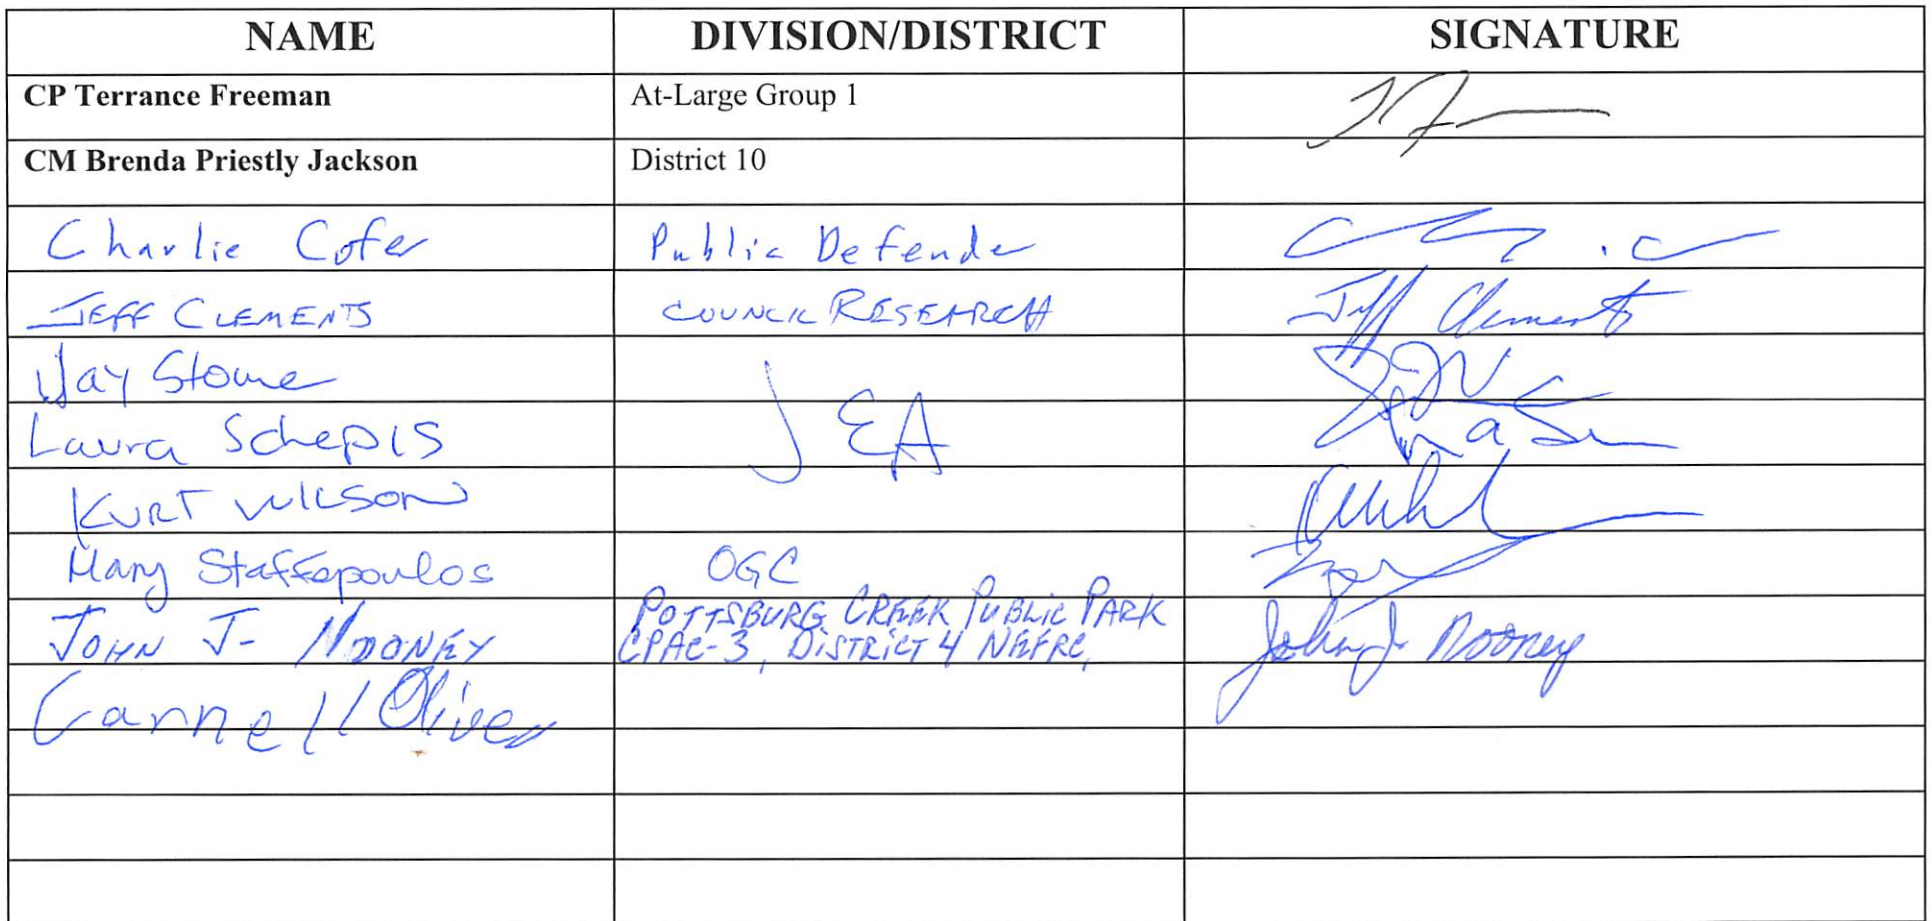 NAME DIVISION/DISTRICT SIGNATURE
CP Terrance Freeman At-Large Group 1
CM Brenda Priestly Jackson District 10
Charlie Cofer Public Defender
JEFF CLEMENTS COUNCIL RESEARCH Jeff Clements
Jay Stowe
Laura Schepis JEA
KURT WILSON
Mary Staffopoulos OGC
POTTSBURG CREEK PUBLIC PARK
JOHN J- NOONEY CPAC-3, DISTRICT 4 NEFRC, John J Nooney
Carnell Oliver